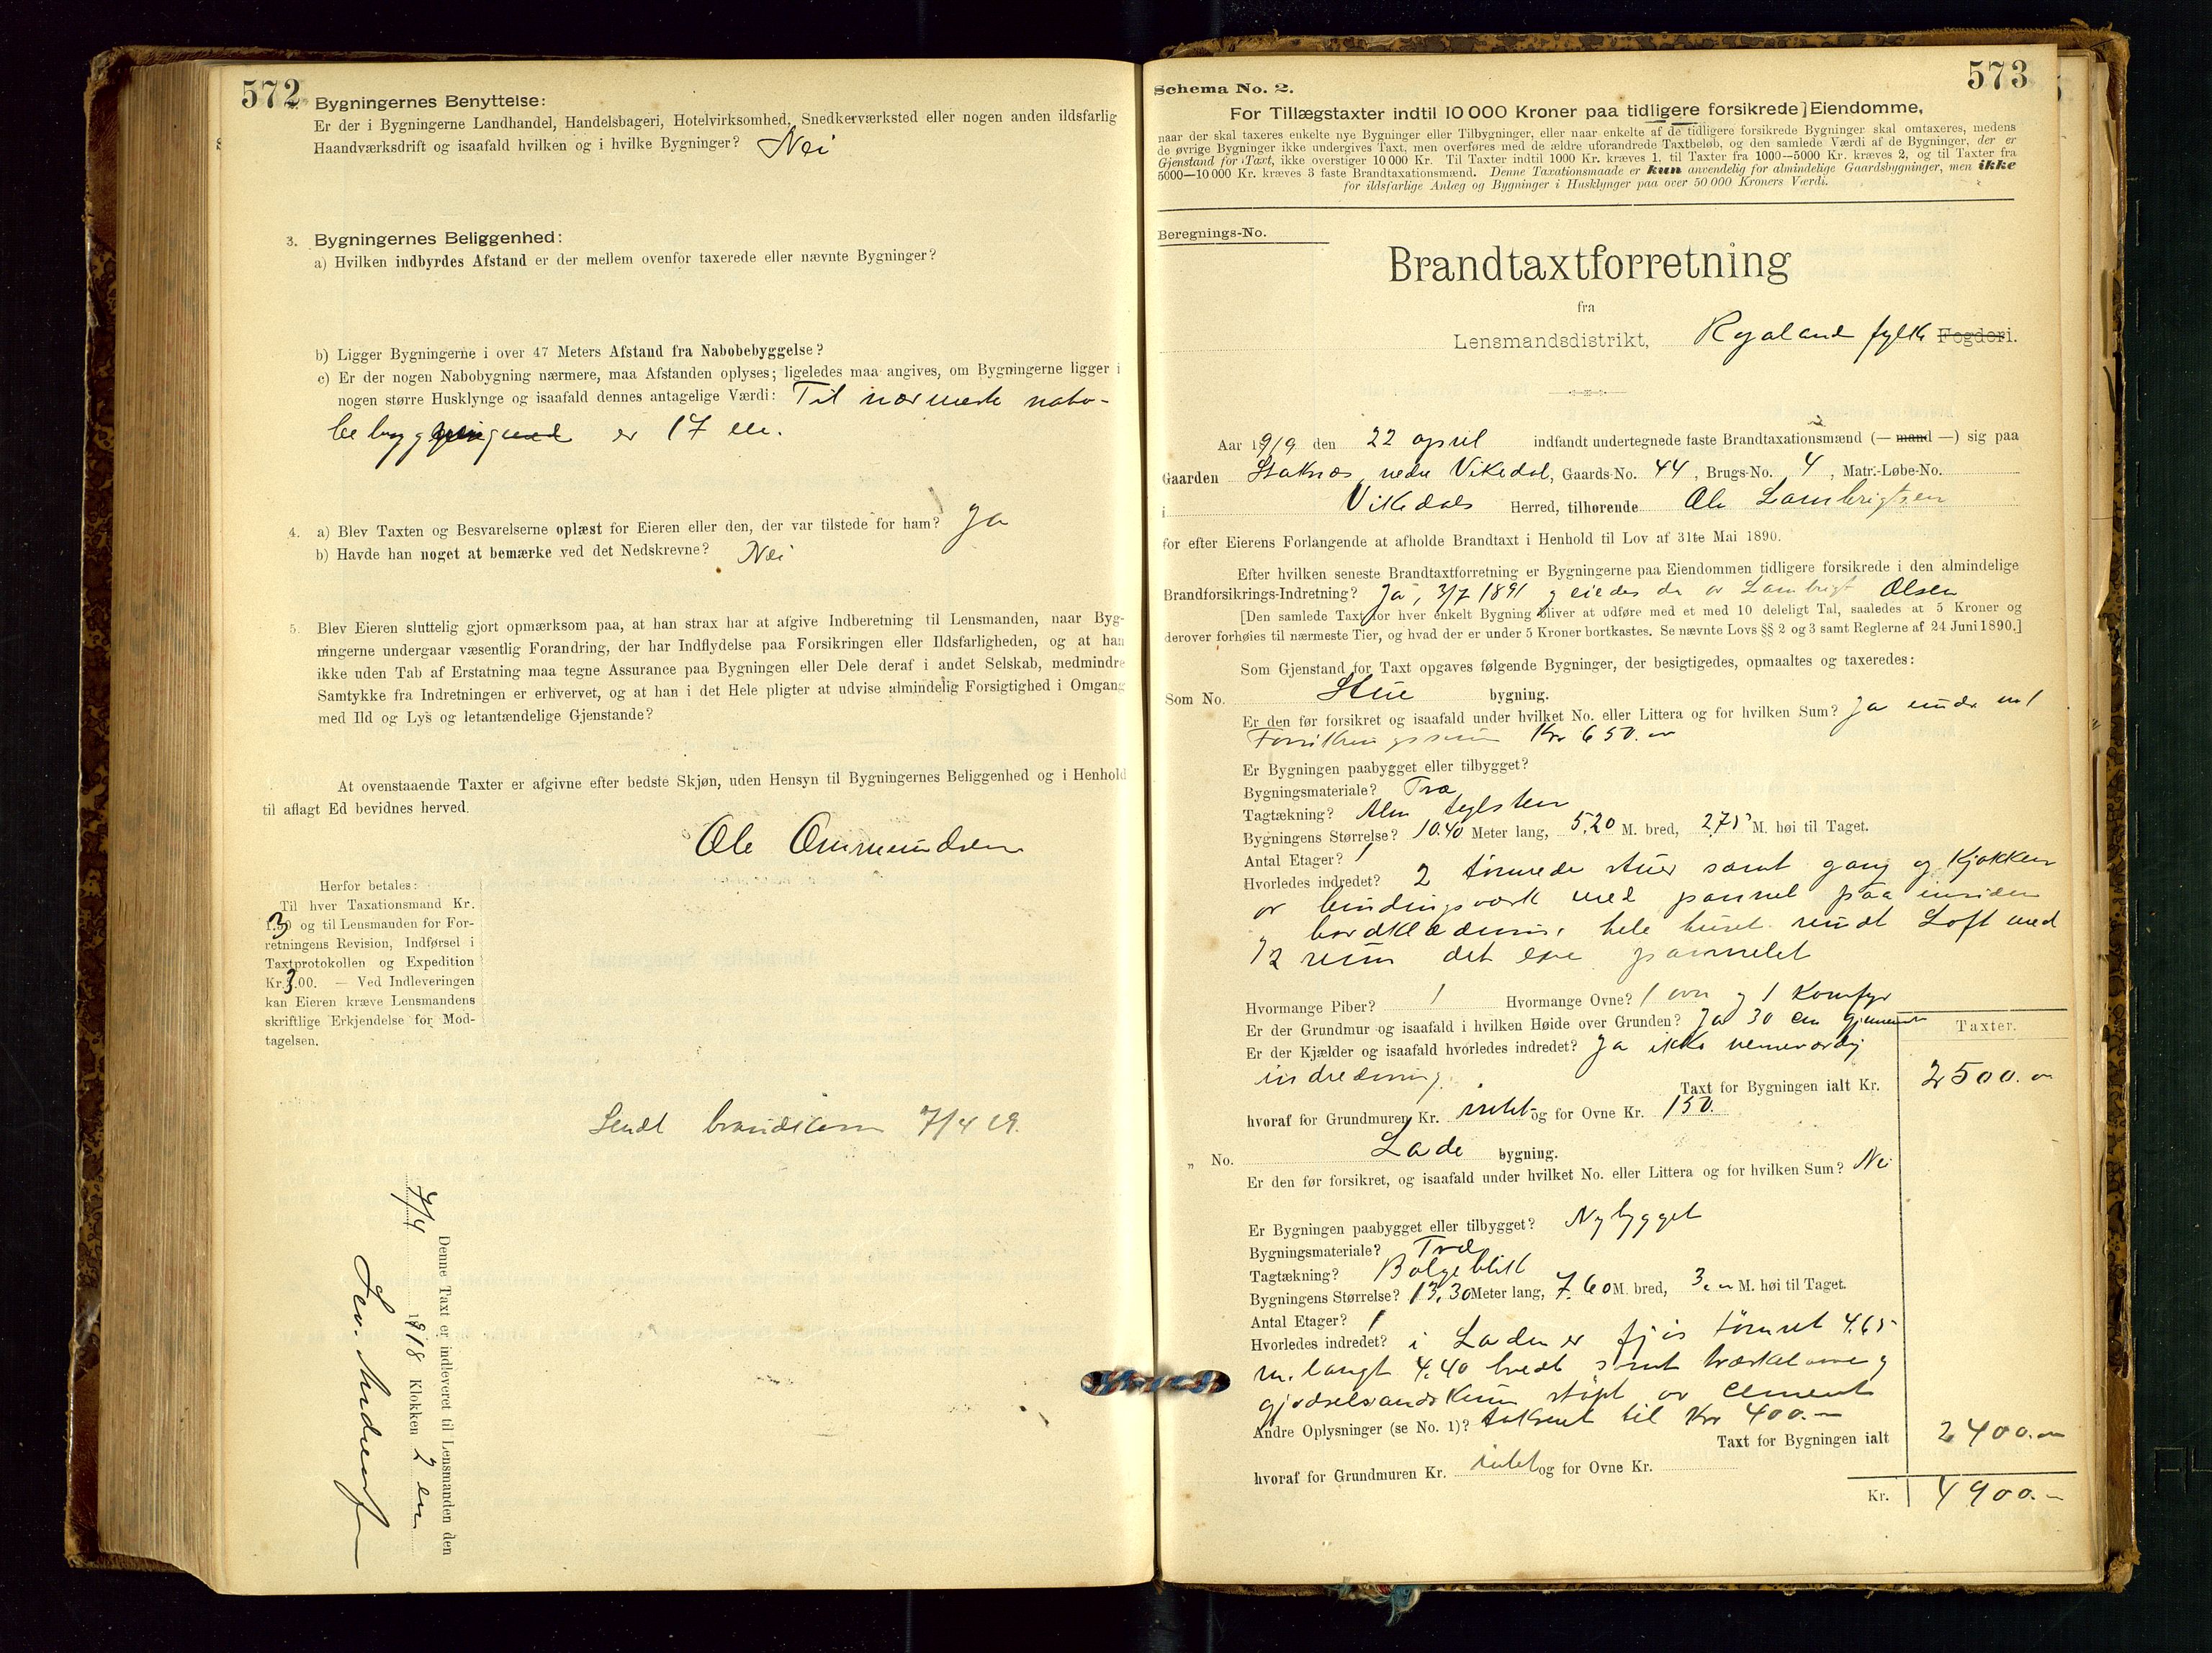 572
Bygningernes Benyttelse:
Er der i Bygningerne Landhandel, Handelsbageri, Hotelvirksomhed, Snedkerværksted eller nogen anden ildsfarlig
Haandværksdrift og isaafald hvilken og i hvilke Bygninger? Nei
3. Bygningernes Beliggenhed:
a) Hvilken indbyrdes Afstand er der mellem ovenfor taxerede eller nævnte Bygninger?
b) Ligger Bygningerne i over 47 Meters Afstand fra Nabobebyggelse?
c) Er der nogen Nabobygning nærmere, maa Afstanden oplyses; ligeledes maa angives, om Bygningerne ligger i
nogen større Husklynge og isaafald dennes antagelige Værdi: Til nærmeste nabo-
er 17 
4. a) Blev Taxten og Besvarelserne oplæst for Eieren eller den, der var tilstede for ham? Ja
b) Havde han noget at bemærke ved det Nedskrevne? Nei
5. Blev Eieren sluttelig gjort opmærksom paa, at han strax har at afgive Indberetning til Lensmanden, naar Byg-
ningerne undergaar væsentlig Forandring, der har Indflydelse paa Forsikringen eller Ildsfarligheden, og at han
ikke uden Tab af Erstatning maa tegne Assurance paa Bygningen eller Dele deraf i andet Selskab, medmindre
Samtykke fra Indretningen er erhvervet, og at han i det Hele pligter at udvise almindelig Forsigtighed i Omgang
med Ild og Lys og letantændelige Gjenstande?
At ovenstaaende Taxter er afgivne efter bedste Skjøn, uden Hensyn til Bygningernes Beliggenhed og i Henhold
til aflagt Ed bevidnes herved.
Ole Ommundsen
Herfor betales:
Til hver Taxationsmand Kr.
3 og til Lensmanden for For-
retningens Revision, Indførsel i
Taxtprotokollen og Expedition
Kr. 3.00. — Ved Indleveringen
kan Eieren kræve Lensmandens
skriftlige Erkjendelse for Mod-
tagelsen.
Sendt 7/4 19.
Denne Taxt er indleveret til Lensmanden den
7/4 1918 Klokken 2 em
573
Schema No. 2.
For Tillægstaxter indtil 10 000 Kroner paa tidligere forsikrede] Eiendomme,
naar der skal taxeres enkelte nye Bygninger eller Tilbygninger, eller naar enkelte af de tidligere forsikrede Bygninger skal omtaxeres, medens
de øvrige Bygninger ikke undergives Taxt, men overføres med de ældre uforandrede Taxtbeløb, og den samlede Værdi af de Bygninger, der er
Gjenstand for Taxt, ikke overstiger 10 000 Kr. Til Taxter indtil 1000 Kr. kræves 1. til Taxter fra 1000—5000 Kr. kræves 2, og til Taxter fra
5000—10 000 Kr. kræves 3 faste Brandtaxationsmænd. Denne Taxationsmaade er kun anvendelig for almindelige Gaardsbygninger, men ikke
for ildsfarlige Anlæg og Bygninger i Husklynger paa over 50 000 Kroners Værdi.
Beregnings-No.
Brandtaxtforretning
fra
Lensmandsdistrikt, Rogaland fylke Fogderi.
Aar 1919 den 22 april indfandt undertegnede faste Brandtaxationsmænd (— mand —) sig paa
Gaarden Staknæs nedre Vikedal, Gaards-No. 44, Brugs-No. 4, Matr.-Løbe-No.
i Vikedals Herred, tilhørende Ole Lambrigtsen
for efter Eierens Forlangende at afholde Brandtaxt i Henhold til Lov af 31te Mai 1890.
Efter hvilken seneste Brandtaxtforretning er Bygningerne paa Eiendommen tidligere forsikrede i den almindelige
Brandforsikrings-Indretning? Ja, 3/7 1891 og eiedes da av Lambrigt Olsen
[Den samlede Taxt for hver enkelt Bygning bliver at udføre med et med 10 deleligt Tal, saaledes at 5 Kroner og
derover forhøies til nærmeste Tier, og hvad der er under 5 Kroner bortkastes. Se nævnte Lovs §§ 2 og 3 samt Reglerne af 24 Juni 1890.]
Som Gjenstand for Taxt opgaves følgende Bygninger, der besigtigedes, opmaaltes og taxeredes:
Som No. Stue bygning.
Er den før forsikret og isaafald under hvilket No. eller Littera og for hvilken Sum? Ja under no 1
Forsikringssum Kr 650.
Er Bygningen paabygget eller tilbygget?
Bygningsmateriale? Træ
Tagtækning? Alm teglsten
Bygningens Størrelse? 10.40 Meter lang, 5.20 M. bred, 2.75 M. høi til Taget.
Antal Etager? 1
Hvorledes indredet? 2 tømrede stuer samt gang og kjøkken
av bindingsværk med pannel paa insiden
bordklædning hele huset rundt Loft med
12 rum det ene pannelet
Hvormange Piber? 1 Hvormange Ovne? 1 ovn og 1 komfyr
Er der Grundmur og isaafald i hvilken Høide over Grunden? Ja 30 cm
Er der Kjælder og isaafald hvorledes indredet? Ja ikke
indredning.
Taxter.
Taxt for Bygningen ialt Kr. 2500.
hvoraf for Grundmuren Kr. intet og for Ovne Kr. 150.
„ No. Lade bygning.
Er den før forsikret, og isaafald under hvilket No. eller Littera og for hvilken Sum? Nei
Er Bygningen paabygget eller tilbygget? Nybygget
Bygningsmateriale? Træ
Tagtækning? Bølgeblik
Bygningens Størrelse? 13.30 Meter lang, 7.60 M. bred, 3. M. høi til Taget.
Antal Etager? 1
Hvorledes indredet? i Laden er fjøs tømret 4.65
m. langt 4.40 bredt samt
gjødselvandskum støpt av cement
Andre Oplysninger (se No. 1)? taksert til Kr 400.—
Taxt for Bygningen ialt 2400.
hvoraf for Grundmuren Kr. intet og for Ovne Kr.
Kr. 4900.—